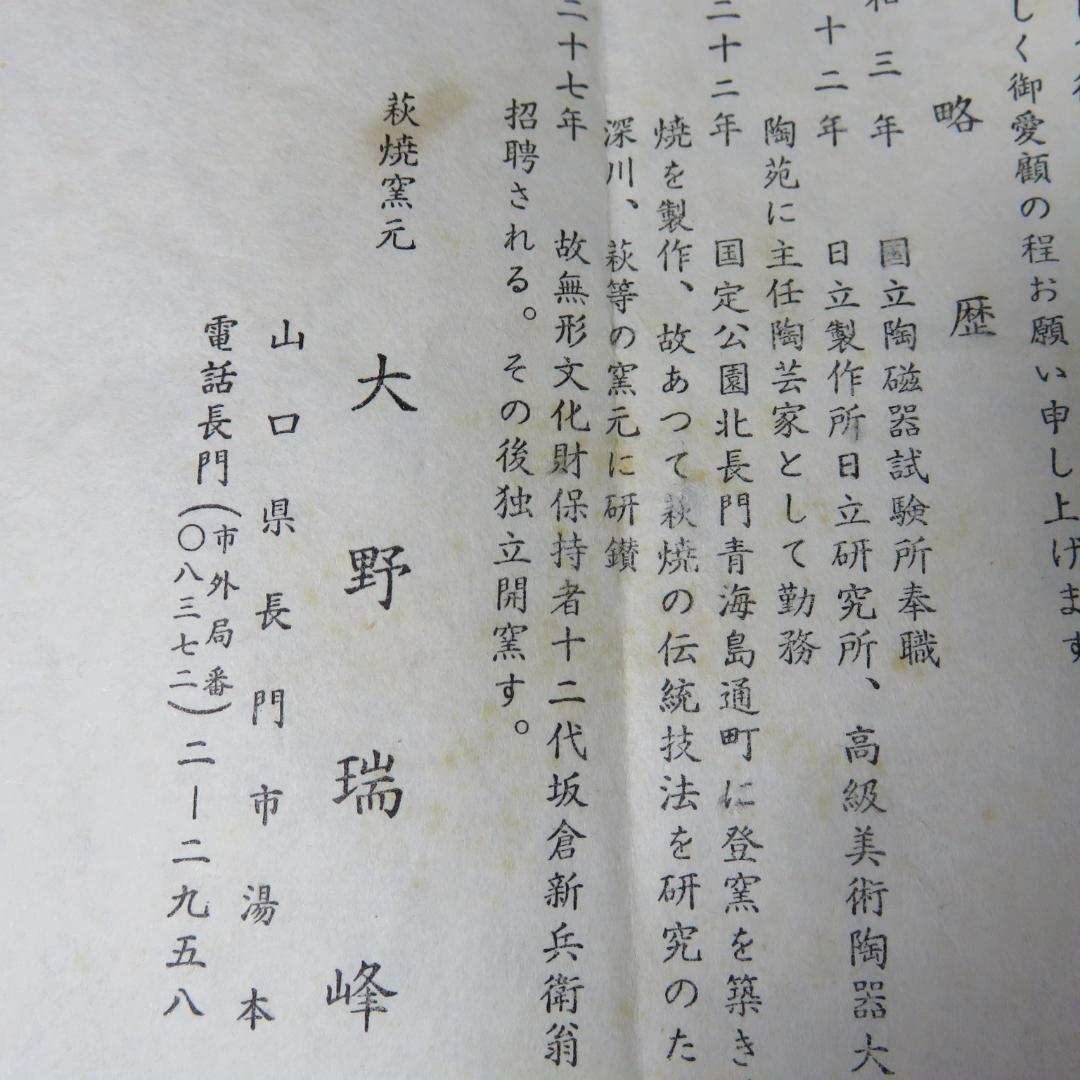 しく御愛顧の程お願い申し上げます
略歴
和三年 国立陶磁器試験所奉職
十二年 日立製作所日立研究所、高級美術陶器大
陶苑に主任陶芸家として勤務
二十二年 国定公園北長門青海島通町に登窯を築き
焼を製作、故あつて萩焼の伝統技法を研究のた
深川、萩等の窯元に研鑚
二十七年 故無形文化財保持者十二代坂倉新兵衛翁
招聘される。その後独立開窯す。
萩焼窯元 大野瑞峰
山口県長門市湯本
電話長門(市外局番〇八三七二)二ー二九五八